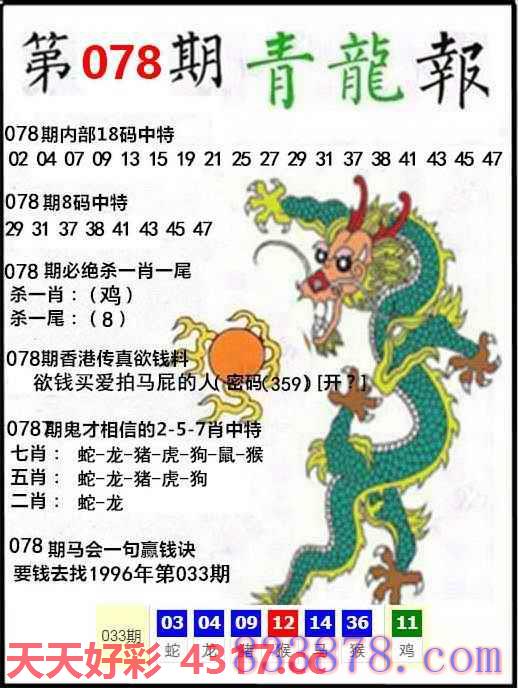 第078期青龍報
078期内部18码中特
02 04 07 09 13 15 19 21 25 27 29 31 37 38 41 43 45 47
078期8码中特
29 31 37 38 41 43 45 47
078 期必绝杀一肖一尾
杀一肖：（鸡）
杀一尾：（8）
078期香港传真欲钱料
欲钱买爱拍马屁的人（密码(359）[开？]
0787期鬼才相信的2-5-7肖中特
七肖： 蛇-龙-猪-虎-狗-鼠-猴
五肖： 蛇-龙-猪-虎-狗
二肖： 蛇-龙
078 期马会一句赢钱诀
要钱去找1996年第033期
033期 03 04 09 12 14 36 11
蛇 龙 猪 猴 马 猴 鸡
天天好彩 4317.cc
833878.com